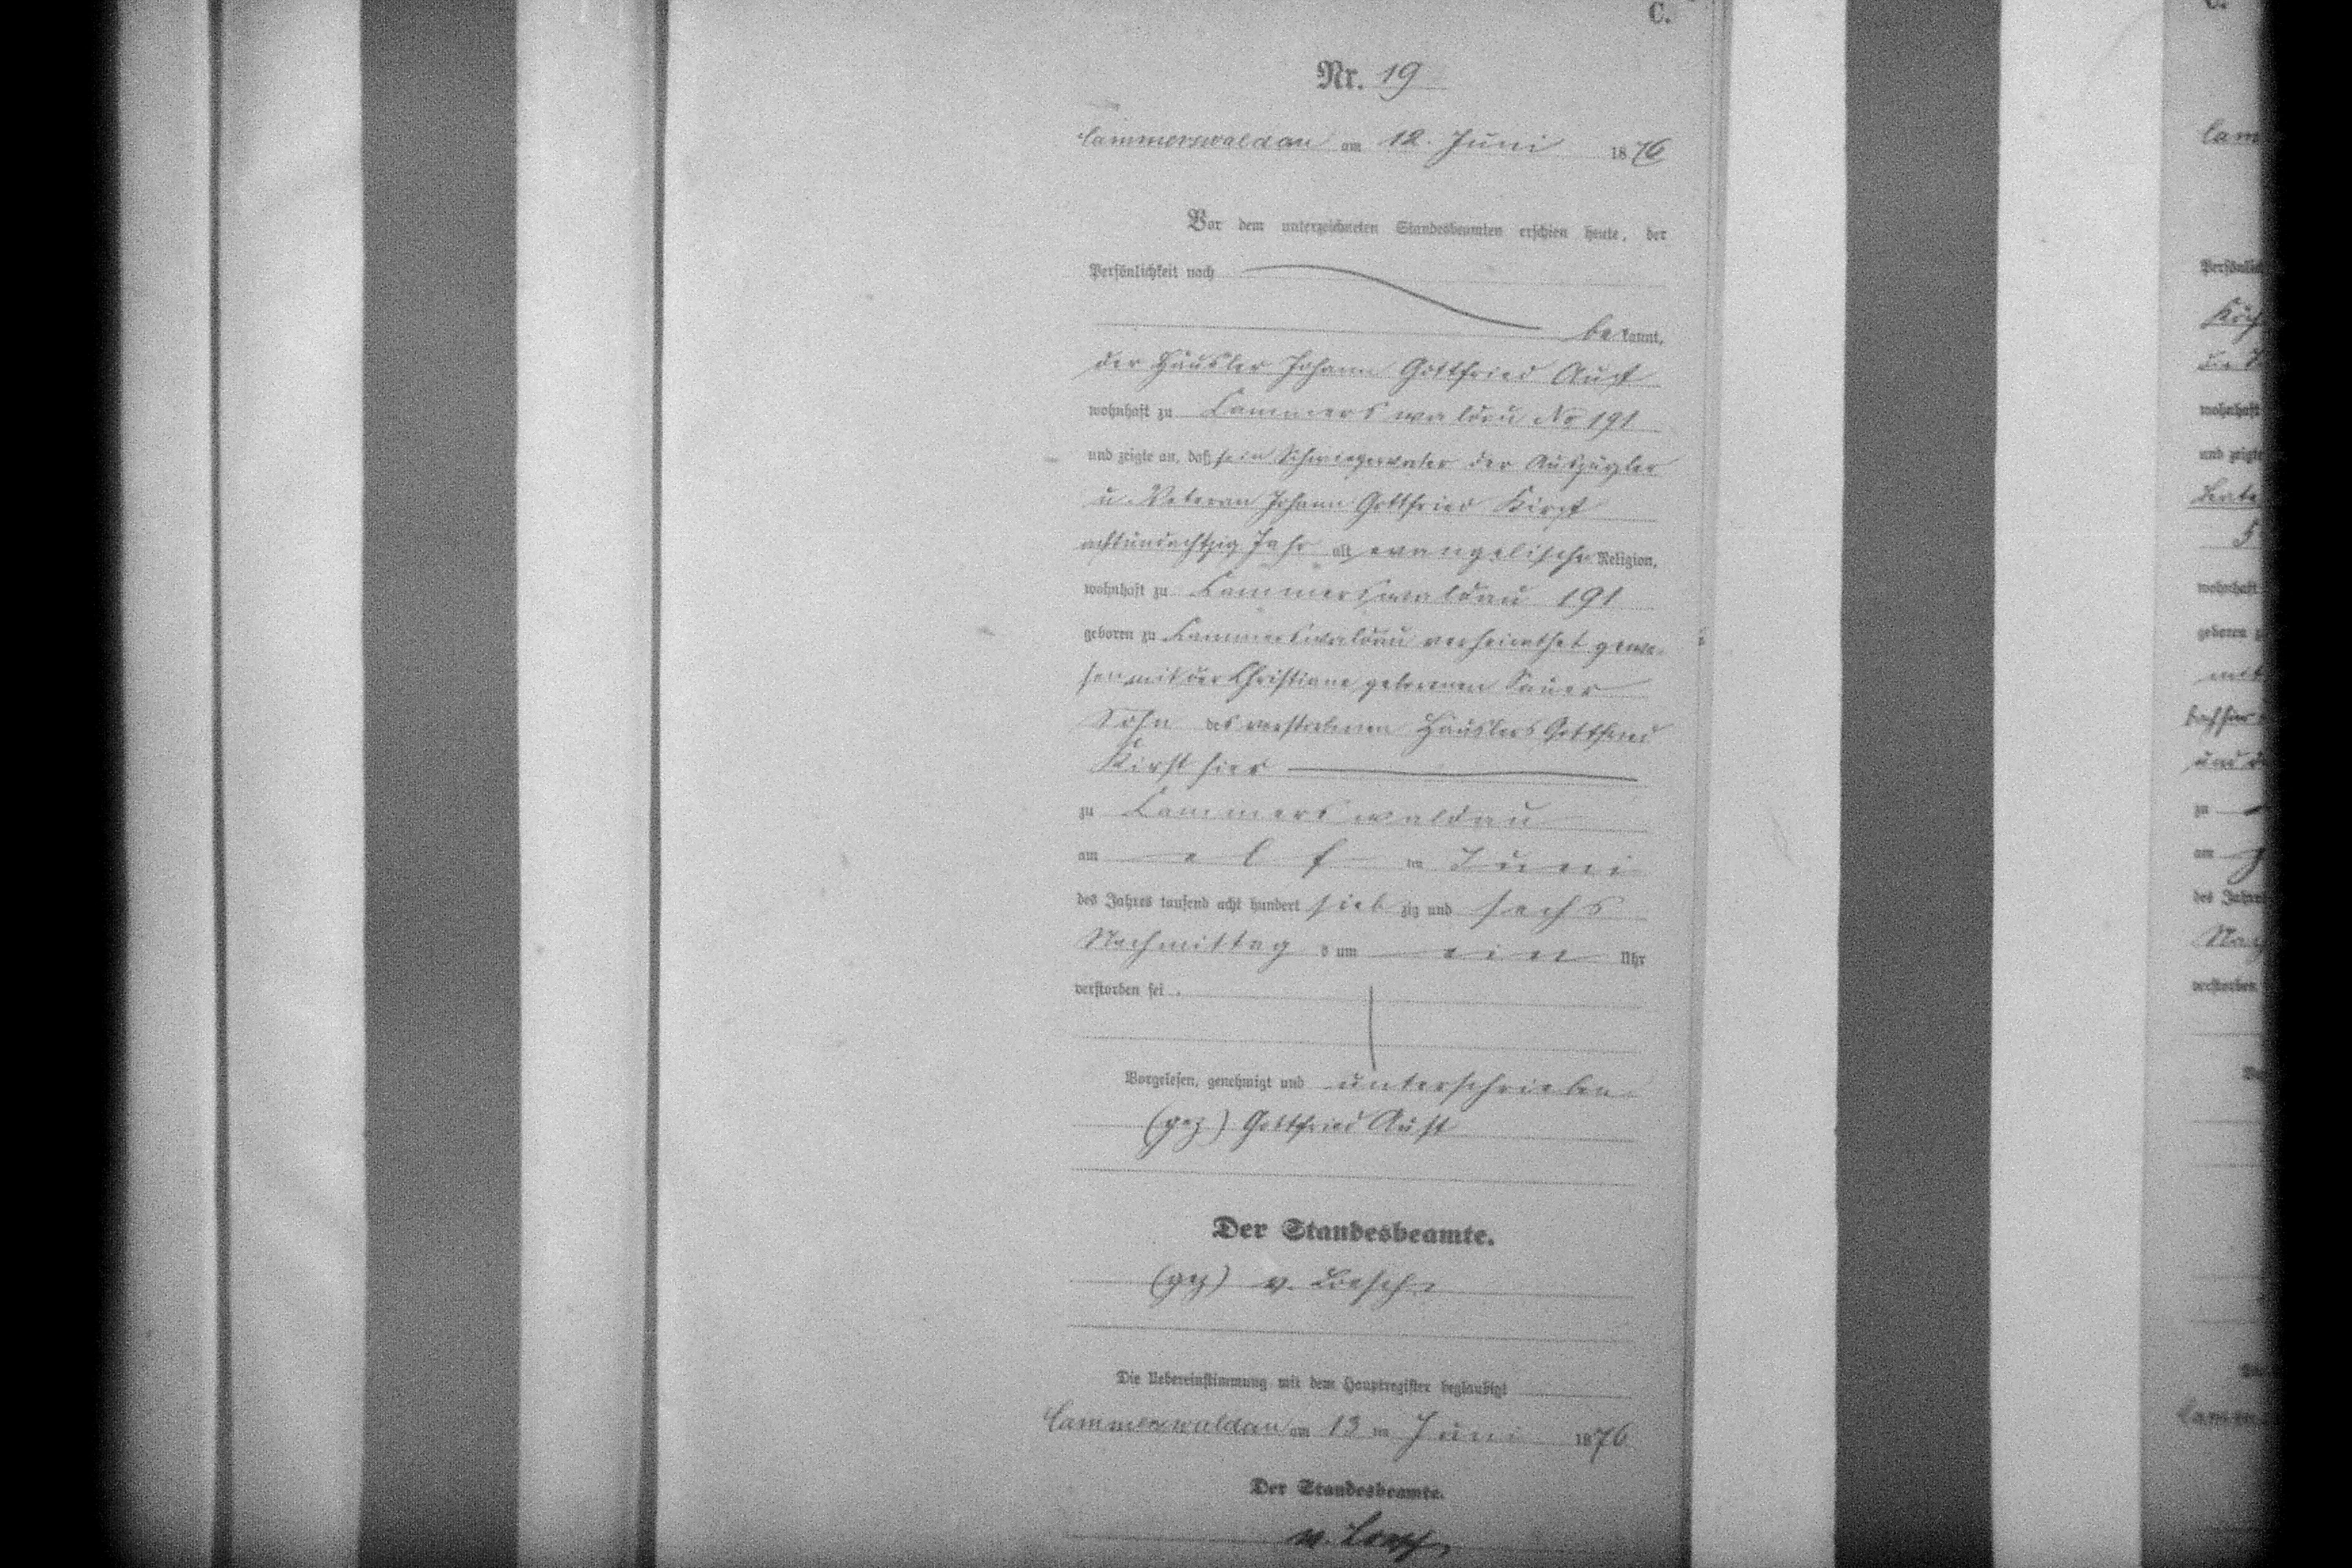 C.
Nr. 19
Cammerswaldau am 12. Juni 1876
Vor dem unterzeichneten Standesbeamten erschien heute, der
Persönlichkeit nach
bekannt,
der Häusler Johann Gottfried Aust
wohnhaft zu Cammerswaldau No 191
und zeigte an, daß sein Schwiegervater der Auszügler
u. Veteran Johann Gottfried Kirst
achtundachtzig Jahr alt, evangelischer Religion,
wohnhaft zu Cammerswaldau 191
geboren zu Cammerswaldau verheirathet gewe-
sen mit der Christiane geborenen Sauer
Sohn des verstorbenen Häuslers Gottfried
Kirst hier
zu Cammerswaldau
am elf ten Juni
des Jahres tausend acht hundert siebzig und sechs
Nachmittags um ein Uhr
verstorben sei.
Vorgelesen, genehmigt und unterschrieben
(gez) Gottfried Aust
Der Standesbeamte.
(gez) v. Loesch
Die Uebereinstimmung mit dem Hauptregister beglaubigt
Cammerswaldau am 13 ten Juni 1876
Der Standesbeamte.
v. Loesch